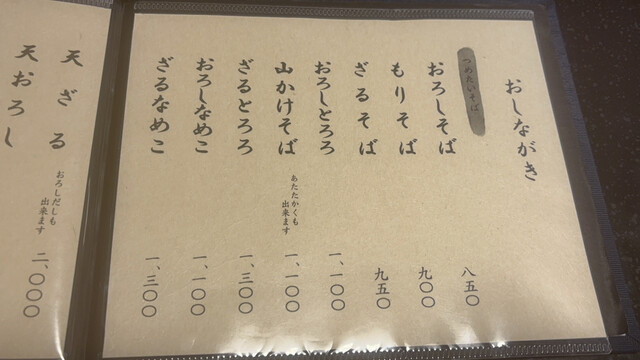 おしながき
つめたいそば
おろしそば 八五〇
もりそば 九〇〇
ざるそば 九五〇
おろしとろろ 一、一〇〇
山かけそば あたたかくも出来ます 一、一〇〇
ざるとろろ 一、三〇〇
おろしなめこ 一、一〇〇
ざるなめこ 一、三〇〇
天ざる おろしだしも出来ます 二、〇〇〇
天おろし